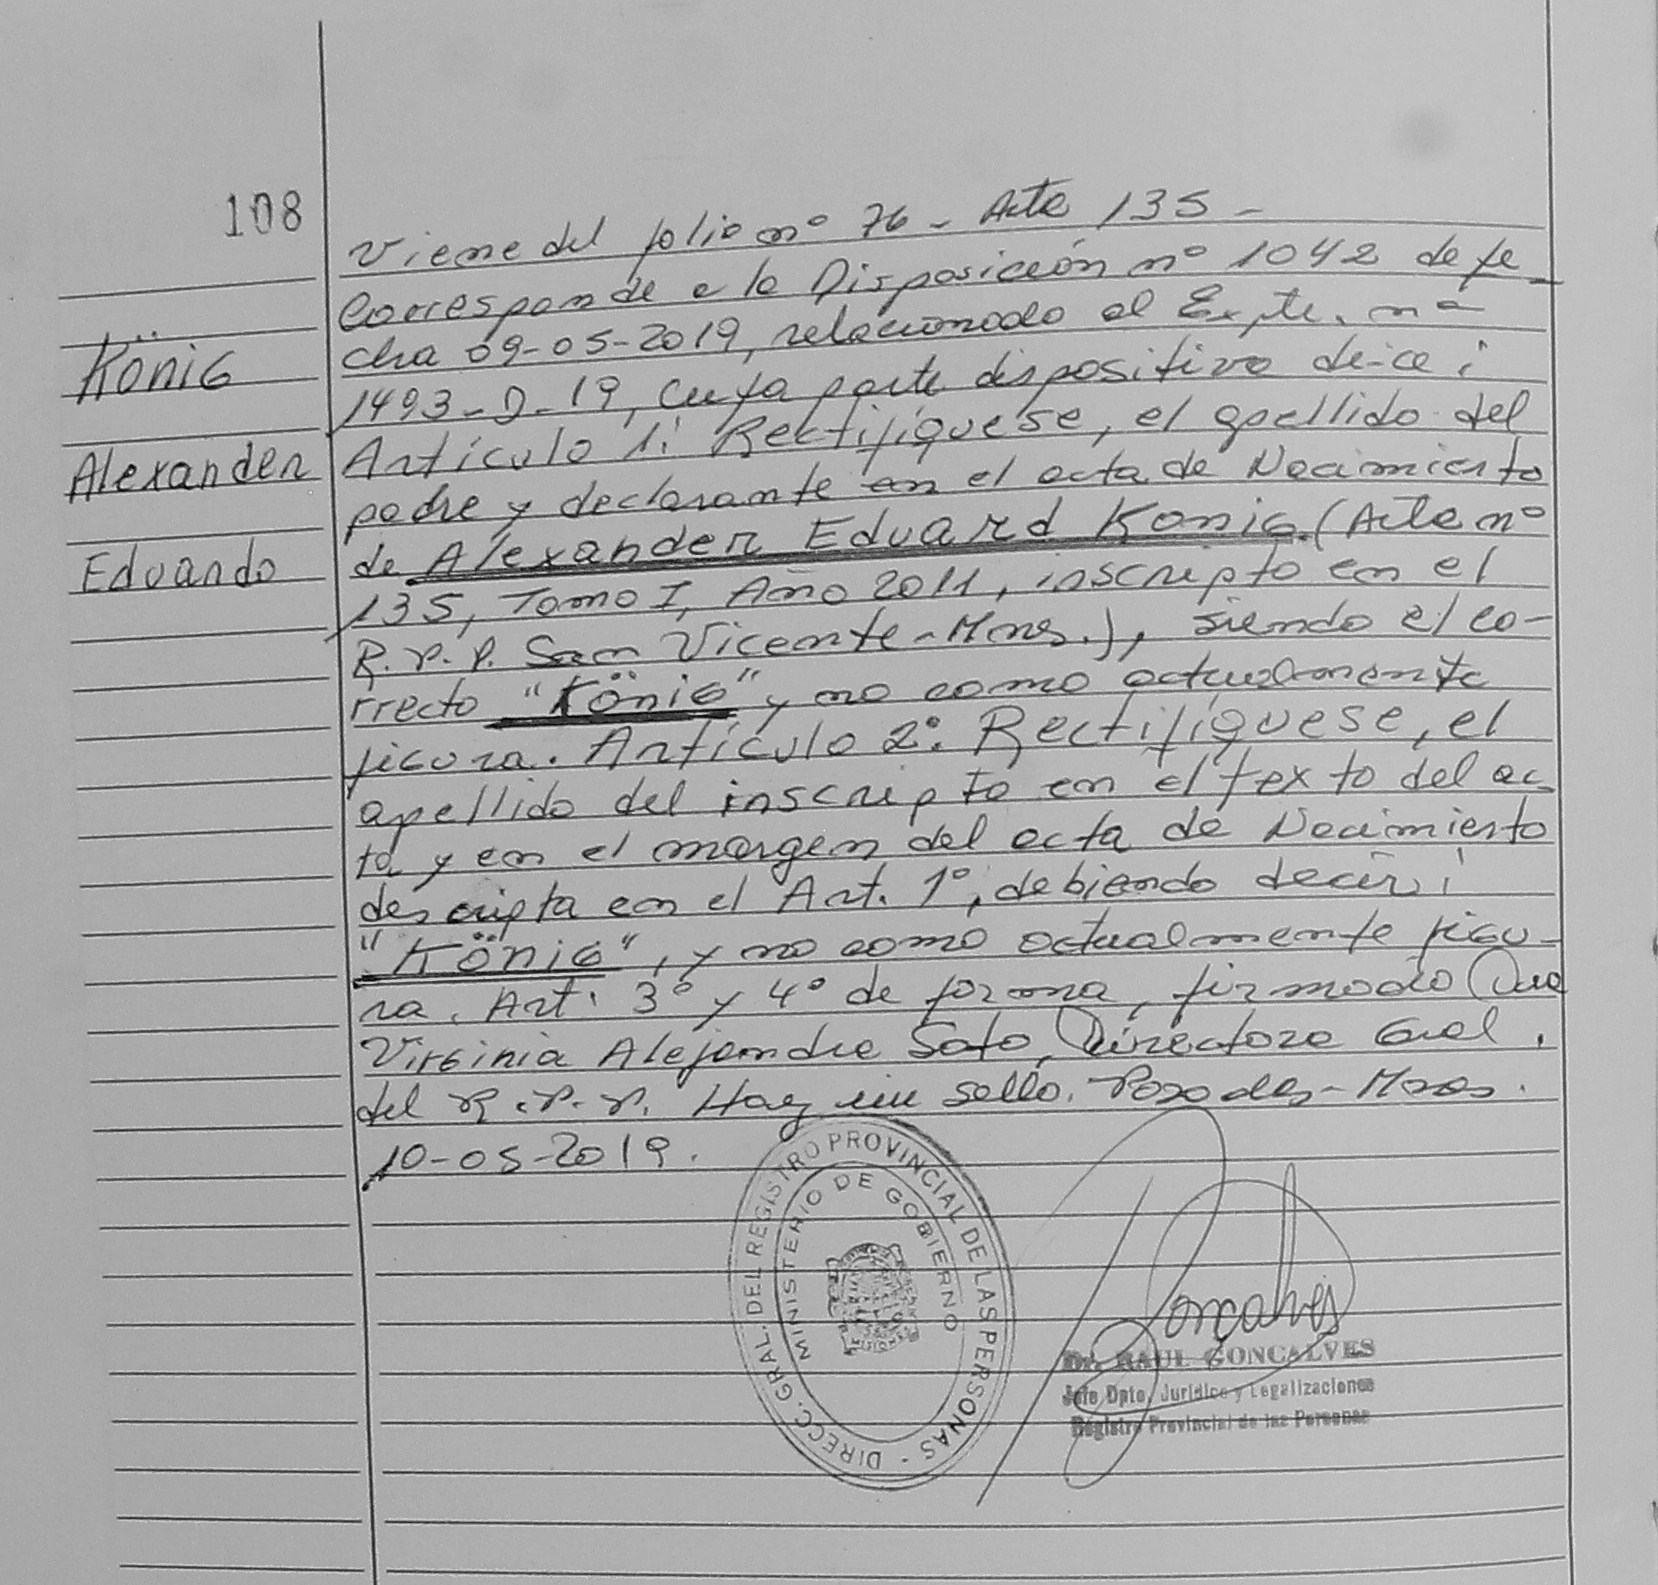 108
König
Alexander
Eduardo
Viene del folio nº 76 - Acta 135 -
Corresponde a la Disposición nº 1042 de fe-
cha 09-05-2019, relacionado al Expte. nº
1493-D-19, cuya parte dispositiva dice:
Artículo 1: Rectifíquese, el apellido del
padre y declarante en el acta de Nacimiento
de Alexander Eduard Konig. (Acta nº
135, Tomo I, Año 2011, inscripto en el
R.P.P. San Vicente-Mnes.), siendo el co-
rrecto "König" y no como actualmente
figura. Artículo 2º: Rectifíquese, el
apellido del inscripto en el texto del ac-
ta y en el margen del acta de Nacimiento
descripta en el Art. 1º, debiendo decir:
"König", y no como actualmente figu-
ra. Art. 3º y 4º de forma, firmado Dra
Virginia Alejandra Soto, Directora Gral.
del R.P.P. Hay un sello. Posadas-Mnes.
10-05-2019.
DIRECC. GRAL. DEL REGISTRO PROVINCIAL DE LAS PERSONAS -
MINISTERIO DE GOBIERNO
MISIONES
Goncalves
Dr. RAUL GONCALVES
Jefe Dpto. Jurídico y Legalizaciones
Registro Provincial de las Personas